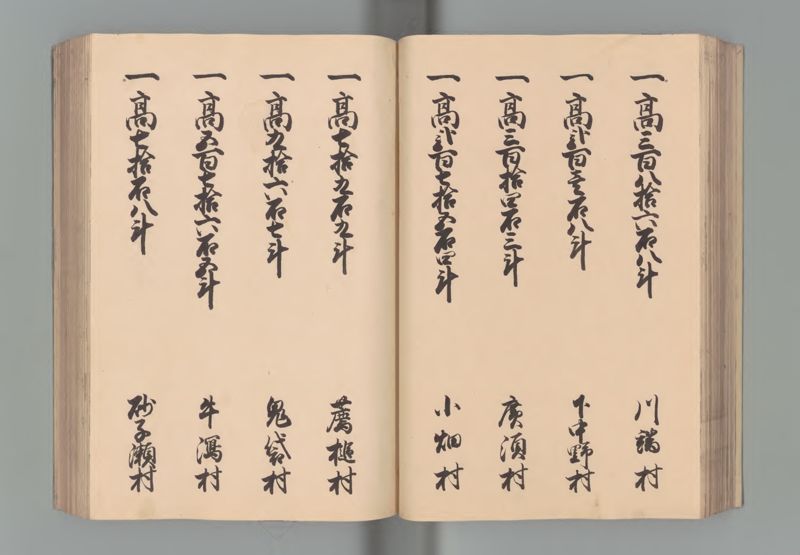 一高三百八拾六石八斗 川端村
一高弐百壱石八斗 下中野村
一高三百拾四石三斗 廣須村
一高弐百七拾五石四斗 小畑村
一高七拾九石九斗 薦槌村
一高九拾六石七斗 鬼袋村
一高五百七拾六石五斗 牛潟村
一高七拾石八斗 砂子瀬村